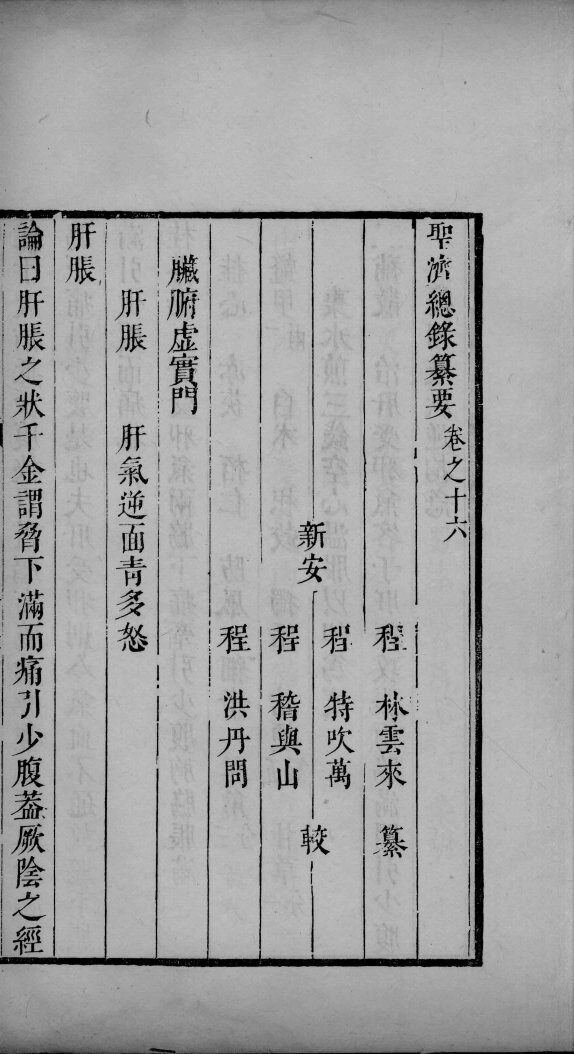 聖濟總錄纂要卷之十六
程林雲來 纂
新安
程特吹萬
較
程稽輿山
程洪丹問
臟腑虛實門
肝脹 肝氣逆面青多怒
肝脹
論曰肝脹之狀千金謂脅下滿而痛引少腹葢厥陰之經